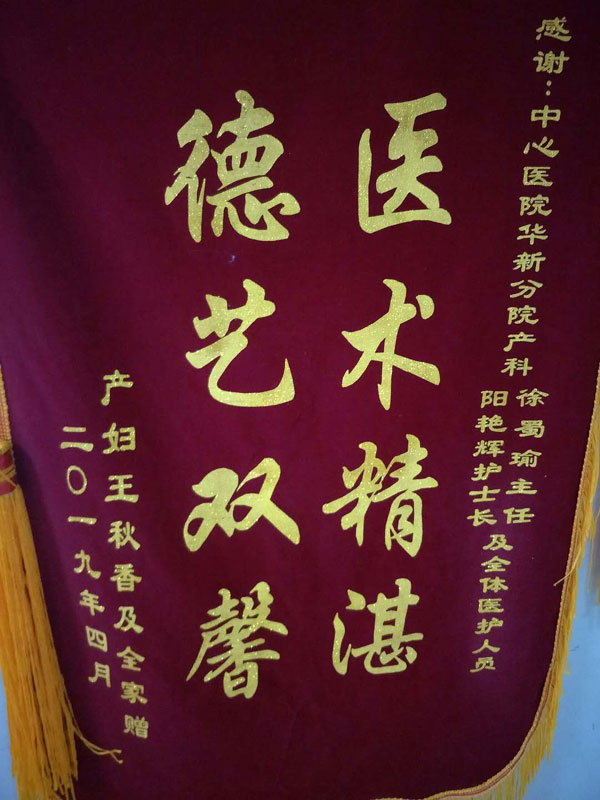 感谢：中心医院华新分院产科
徐蜀瑜主任
阳艳辉护士长
及全体医护人员
医术精湛
德艺双馨
产妇王秋香及全家赠
二〇一九年四月